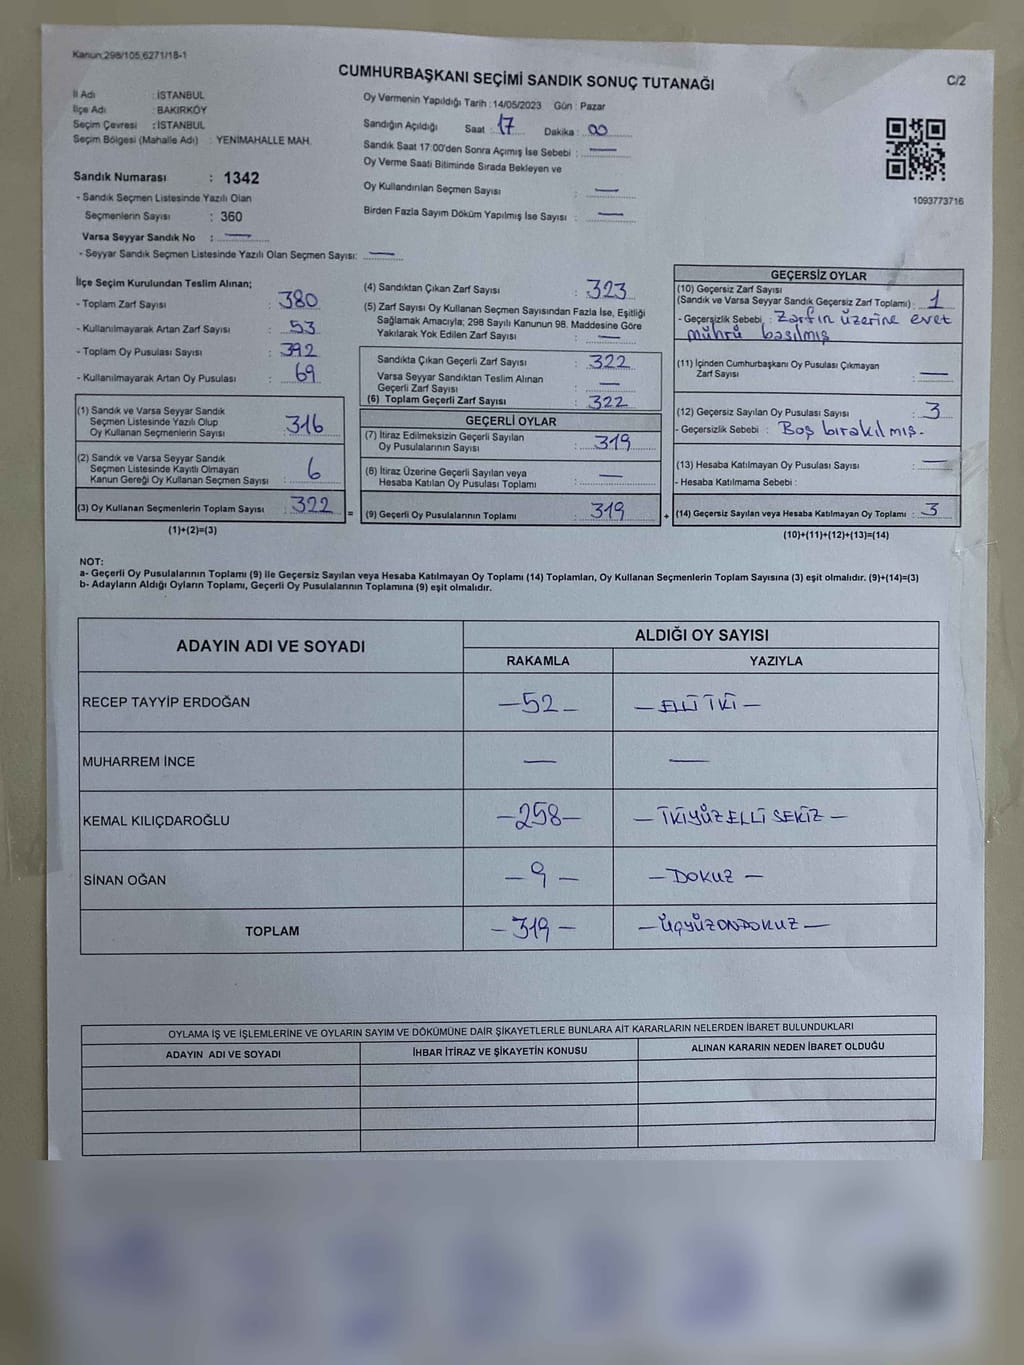 Kanun:298/105,6271/18-1
CUMHURBAŞKANI SEÇİMİ SANDIK SONUÇ TUTANAĞI
C/2
İl Adı : İSTANBUL
İlçe Adı : BAKIRKÖY
Seçim Çevresi : İSTANBUL
Seçim Bölgesi (Mahalle Adı) : YENİMAHALLE MAH.
Sandık Numarası : 1342
- Sandık Seçmen Listesinde Yazılı Olan
Seçmenlerin Sayısı : 360
Varsa Seyyar Sandık No : —
- Seyyar Sandık Seçmen Listesinde Yazılı Olan Seçmen Sayısı: —
Oy Vermenin Yapıldığı Tarih : 14/05/2023 Gün : Pazar
Sandığın Açıldığı Saat : 17 Dakika : 00
Sandık Saat 17:00'den Sonra Açımış İse Sebebi : —
Oy Verme Saati Bitiminde Sırada Bekleyen ve
Oy Kullandırılan Seçmen Sayısı : —
Birden Fazla Sayım Döküm Yapılmış İse Sayısı : —
1093773716
İlçe Seçim Kurulundan Teslim Alınan;
- Toplam Zarf Sayısı : 380
- Kullanılmayarak Artan Zarf Sayısı : 53
- Toplam Oy Pusulası Sayısı : 392
- Kullanılmayarak Artan Oy Pusulası : 69
(1) Sandık ve Varsa Seyyar Sandık
Seçmen Listesinde Yazılı Olup
Oy Kullanan Seçmenlerin Sayısı : 316
(2) Sandık ve Varsa Seyyar Sandık
Seçmen Listesinde Kayıtlı Olmayan
Kanun Gereği Oy Kullanan Seçmen Sayısı : 6
(3) Oy Kullanan Seçmenlerin Toplam Sayısı : 322
(1)+(2)=(3)
=
(4) Sandıktan Çıkan Zarf Sayısı : 323
(5) Zarf Sayısı Oy Kullanan Seçmen Sayısından Fazla İse, Eşitliği
Sağlamak Amacıyla; 298 Sayılı Kanunun 98. Maddesine Göre
Yakılarak Yok Edilen Zarf Sayısı : —
Sandıkta Çıkan Geçerli Zarf Sayısı : 322
Varsa Seyyar Sandıktan Teslim Alınan
Geçerli Zarf Sayısı : —
(6) Toplam Geçerli Zarf Sayısı : 322
GEÇERLİ OYLAR
(7) İtiraz Edilmeksizin Geçerli Sayılan
Oy Pusulalarının Sayısı : 319
(8) İtiraz Üzerine Geçerli Sayılan veya
Hesaba Katılan Oy Pusulası Toplamı : —
(9) Geçerli Oy Pusulalarının Toplamı : 319
+
GEÇERSİZ OYLAR
(10) Geçersiz Zarf Sayısı
(Sandık ve Varsa Seyyar Sandık Geçersiz Zarf Toplamı) : 1
- Geçersizlik Sebebi : Zarfın üzerine evet
mührü basılmış
(11) İçinden Cumhurbaşkanı Oy Pusulası Çıkmayan
Zarf Sayısı : —
(12) Geçersiz Sayılan Oy Pusulası Sayısı : 3
- Geçersizlik Sebebi : Boş bırakılmış.
(13) Hesaba Katılmayan Oy Pusulası Sayısı : —
- Hesaba Katılmama Sebebi :
(14) Geçersiz Sayılan veya Hesaba Katılmayan Oy Toplamı : 3
(10)+(11)+(12)+(13)=(14)
NOT:
a- Geçerli Oy Pusulalarının Toplamı (9) ile Geçersiz Sayılan veya Hesaba Katılmayan Oy Toplamı (14) Toplamları, Oy Kullanan Seçmenlerin Toplam Sayısına (3) eşit olmalıdır. (9)+(14)=(3)
b- Adayların Aldığı Oyların Toplamı, Geçerli Oy Pusulalarının Toplamına (9) eşit olmalıdır.
ADAYIN ADI VE SOYADI
ALDIĞI OY SAYISI
RAKAMLA YAZIYLA
RECEP TAYYİP ERDOĞAN —52— —ELLİ İKİ—
MUHARREM İNCE — —
KEMAL KILIÇDAROĞLU —258— —İKİYÜZELLİ SEKİZ—
SİNAN OĞAN —9— —DOKUZ—
TOPLAM —319— —ÜÇYÜZONDOKUZ—
OYLAMA İŞ VE İŞLEMLERİNE VE OYLARIN SAYIM VE DÖKÜMÜNE DAİR ŞİKAYETLERLE BUNLARA AİT KARARLARIN NELERDEN İBARET BULUNDUKLARI
ADAYIN ADI VE SOYADI İHBAR İTİRAZ VE ŞİKAYETİN KONUSU ALINAN KARARIN NEDEN İBARET OLDUĞU